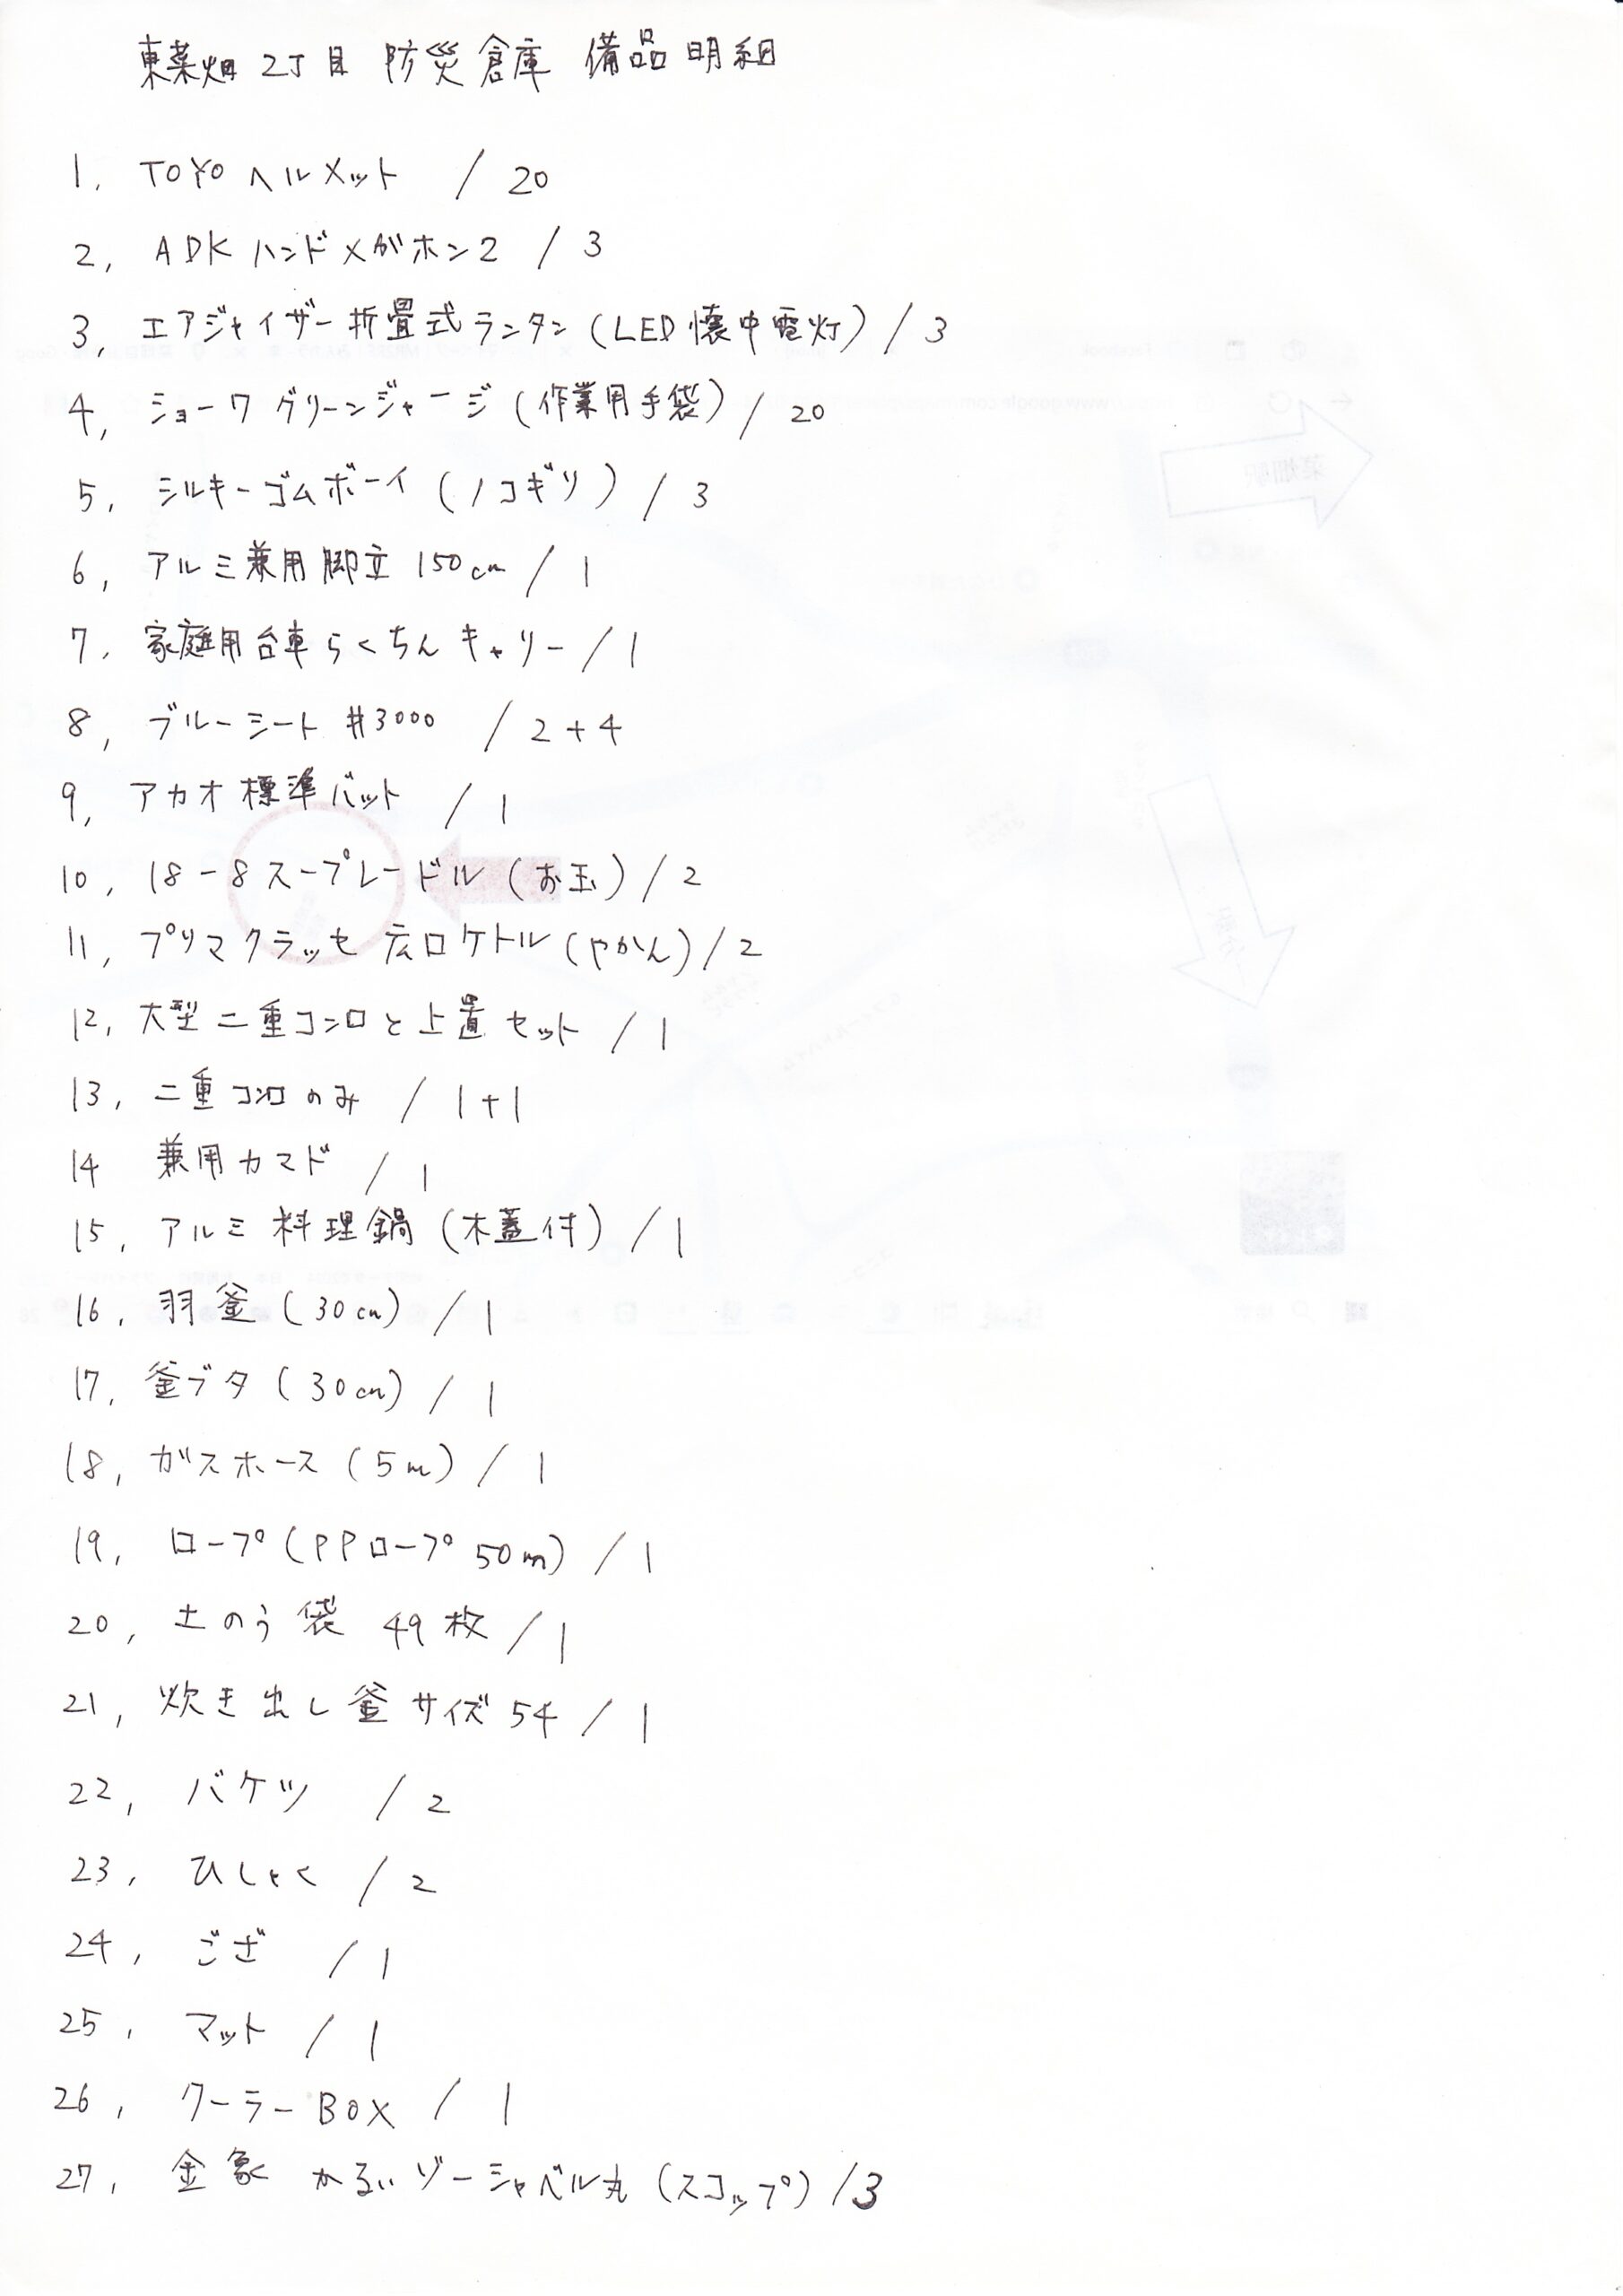 東菜畑2丁目 防災倉庫 備品明細
1, TOYO ヘルメット / 20
2, ADK ハンドメガホン2 / 3
3, エアジャイザー折畳式ランタン(LED懐中電灯) / 3
4, ショーワグリーンジャージ(作業用手袋) / 20
5, シルキーゴムボーイ(ノコギリ) / 3
6, アルミ兼用脚立 150cm / 1
7, 家庭用台車らくちんキャリー / 1
8, ブルーシート #3000 / 2+4
9, アカオ標準バット / 1
10, 18-8スープレードル(お玉) / 2
11, プリマクラッセ 広口ケトル(やかん) / 2
12, 大型二重コンロと上置セット / 1
13, 二重コンロのみ / 1+1
14 兼用カマド / 1
15, アルミ料理鍋(木蓋付) / 1
16, 羽釜(30cm) / 1
17, 釜ブタ(30cm) / 1
18, ガスホース(5m) / 1
19, ロープ(PPロープ 50m) / 1
20, 土のう袋 49枚 / 1
21, 炊き出し釜サイズ54 / 1
22, バケツ / 2
23, ひしゃく / 2
24, ござ / 1
25, マット / 1
26, クーラーBOX / 1
27, 金象 かるいゾーシャベル丸(スコップ) / 3